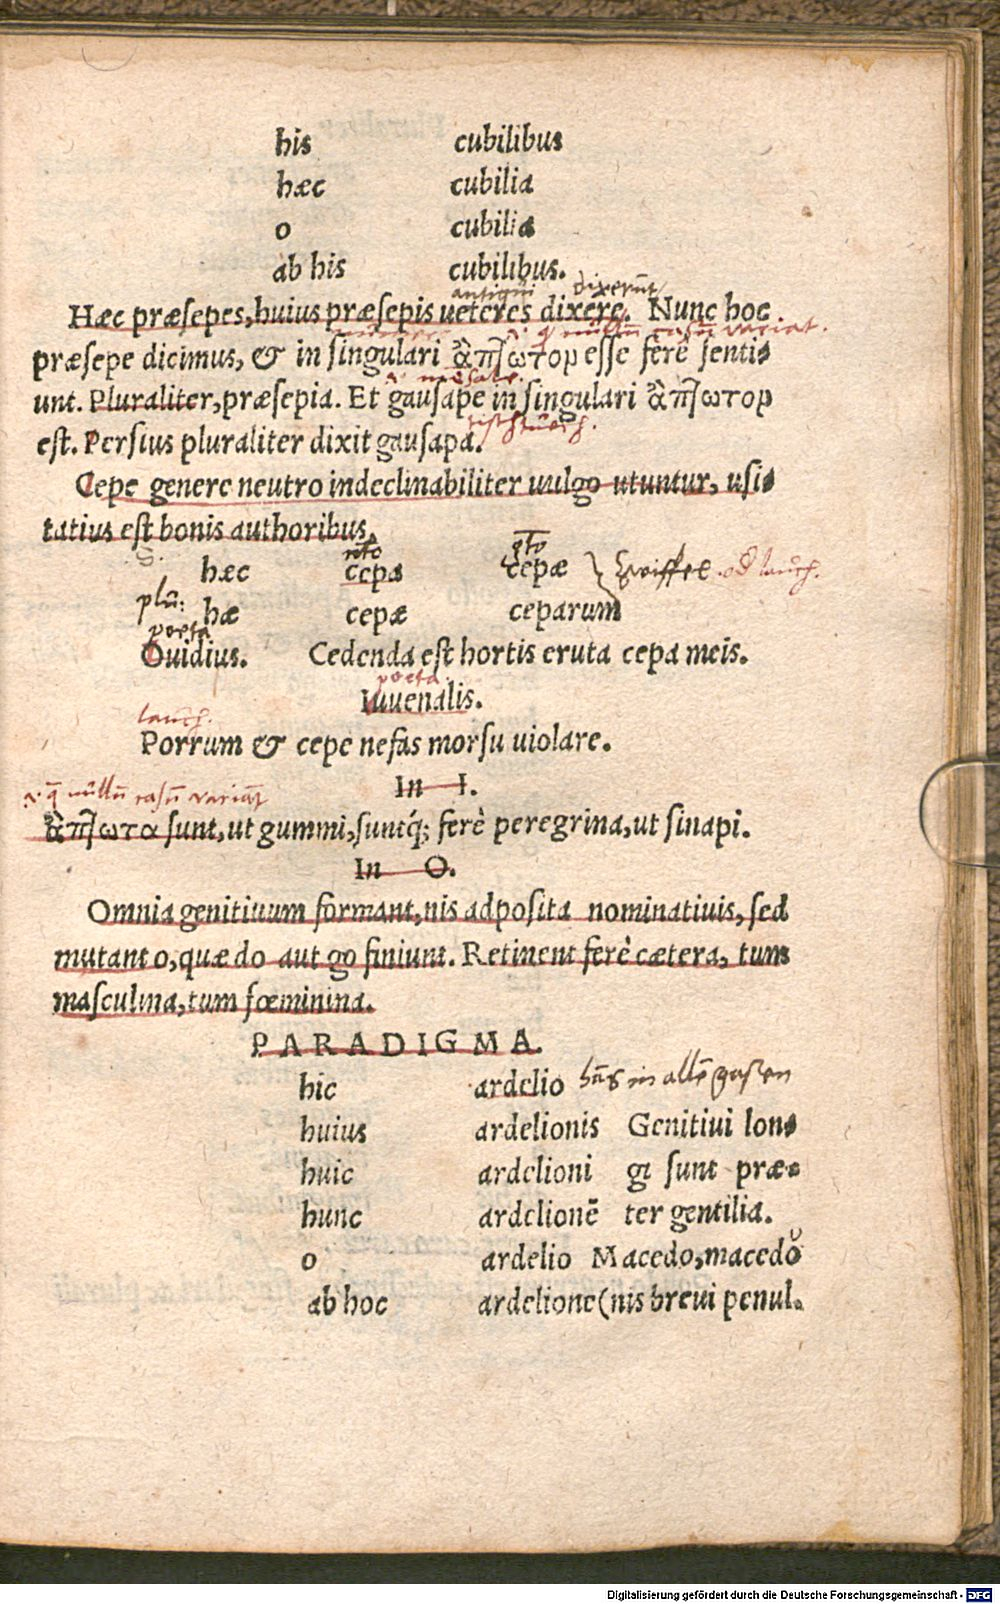 his cubilibus
hæc cubilia
o cubilia
ab his cubilibus.
antiqui dixerũt
Hæc præsepes, huius præsepis ueteres dixere. Nunc hoc
.i. q̃ nullũ casũ variat.
præsepe dicimus, & in singulari ἄπτωτον esse ferè senti-
unt. Pluraliter, præsepia. Et gausape in singulari ἄπτωτον
est. Persius pluraliter dixit gausapa.
Cepe genere neutro indeclinabiliter uulgo utuntur, usi-
tatius est bonis authoribus,
S.
hæc cepa cepæ Zwiffel od lauch.
plũ: hæ cepæ ceparum
poeta
Ouidius. Cedenda est hortis eruta cepa meis.
poeta.
Iuuenalis.
lauch.
Porrum & cepe nefas morsu uiolare.
In I.
.i. q̃ nullũ casũ variãt
ἄπτωτα sunt, ut gummi, suntq́; ferè peregrina, ut sinapi.
In O.
Omnia genitiuum formant, nis adposita nominatiuis, sed
mutant o, quæ do aut go finiunt. Retinent ferè cætera, tum
masculina, tum fœminina.
PARADIGMA.
hic ardelio hãs in allẽ gassen
huius ardelionis Genitiui lon-
huic ardelioni gi sunt præ-
hunc ardelionẽ ter gentilia.
o ardelio Macedo, macedo
ab hoc ardelione (nis breui penul.
Digitalisierung gefördert durch die Deutsche Forschungsgemeinschaft - DFG